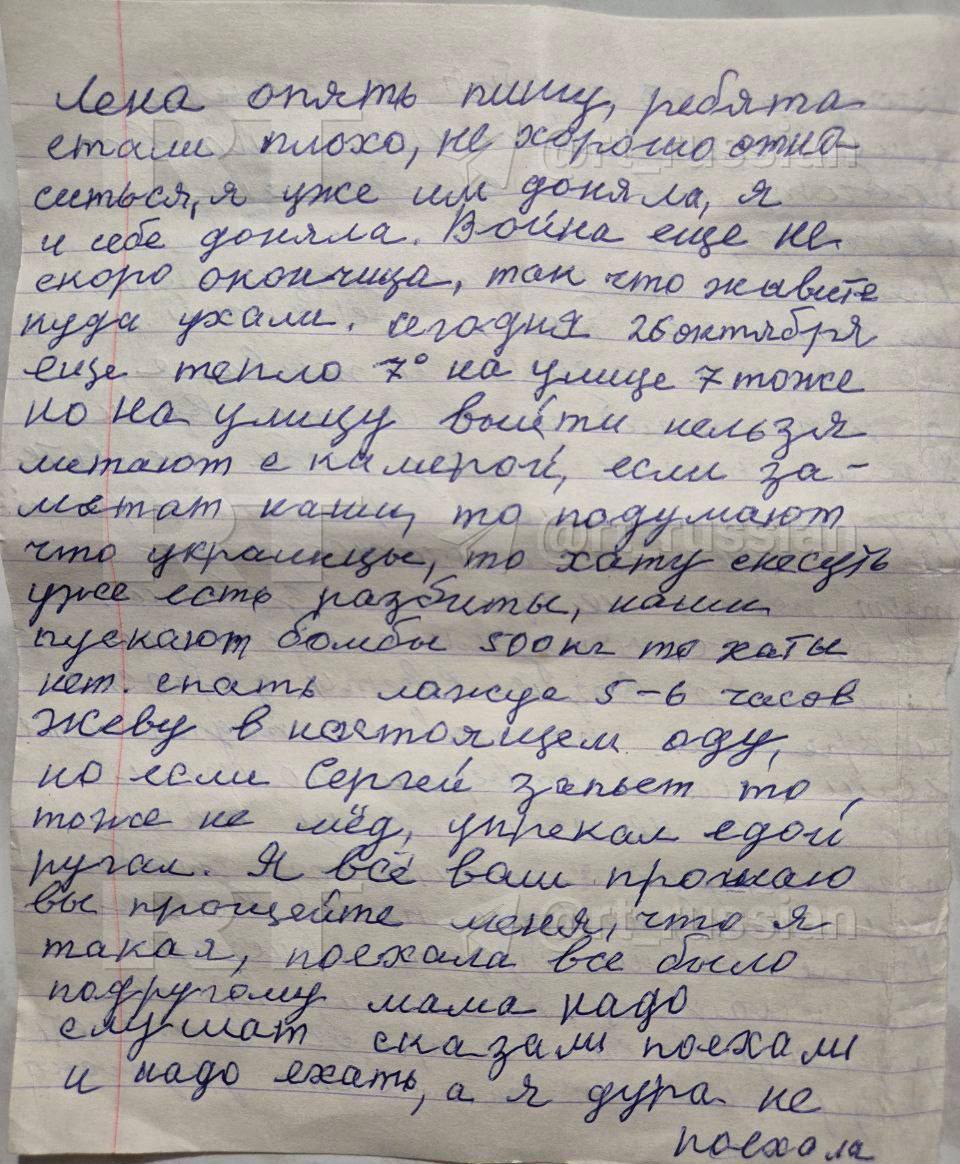 Лена опять пишу, ребята
стали плохо, не хорошо отно-
ситься, я уже им доняла, я
и себе доняла. Война еще не
скоро окончица, так что живите
куда ухали. сегодня 26 октября
еще тепло 7° на улице 7 тоже
но на улицу выйти нельзя
метают с камерой, если за-
метат наши, то подумают
что украинцы, то хату снесуть
уже есть разбиты, наши
пускают бомбы 500 кг то хаты
нет. спать ложусь 5-6 часов
Жеву в настоящем аду,
но если Сергей запьет то,
тоже не мёд, упрекал едой
ругал. Я всё вам прощаю
вы прощейте меня, что я
такая, поехала все было
подругому мама надо
слушат сказали поехали
и надо ехать, а я дура не
поехала
RT @rt_russian
RT @rt_russian
RT @rt_russian